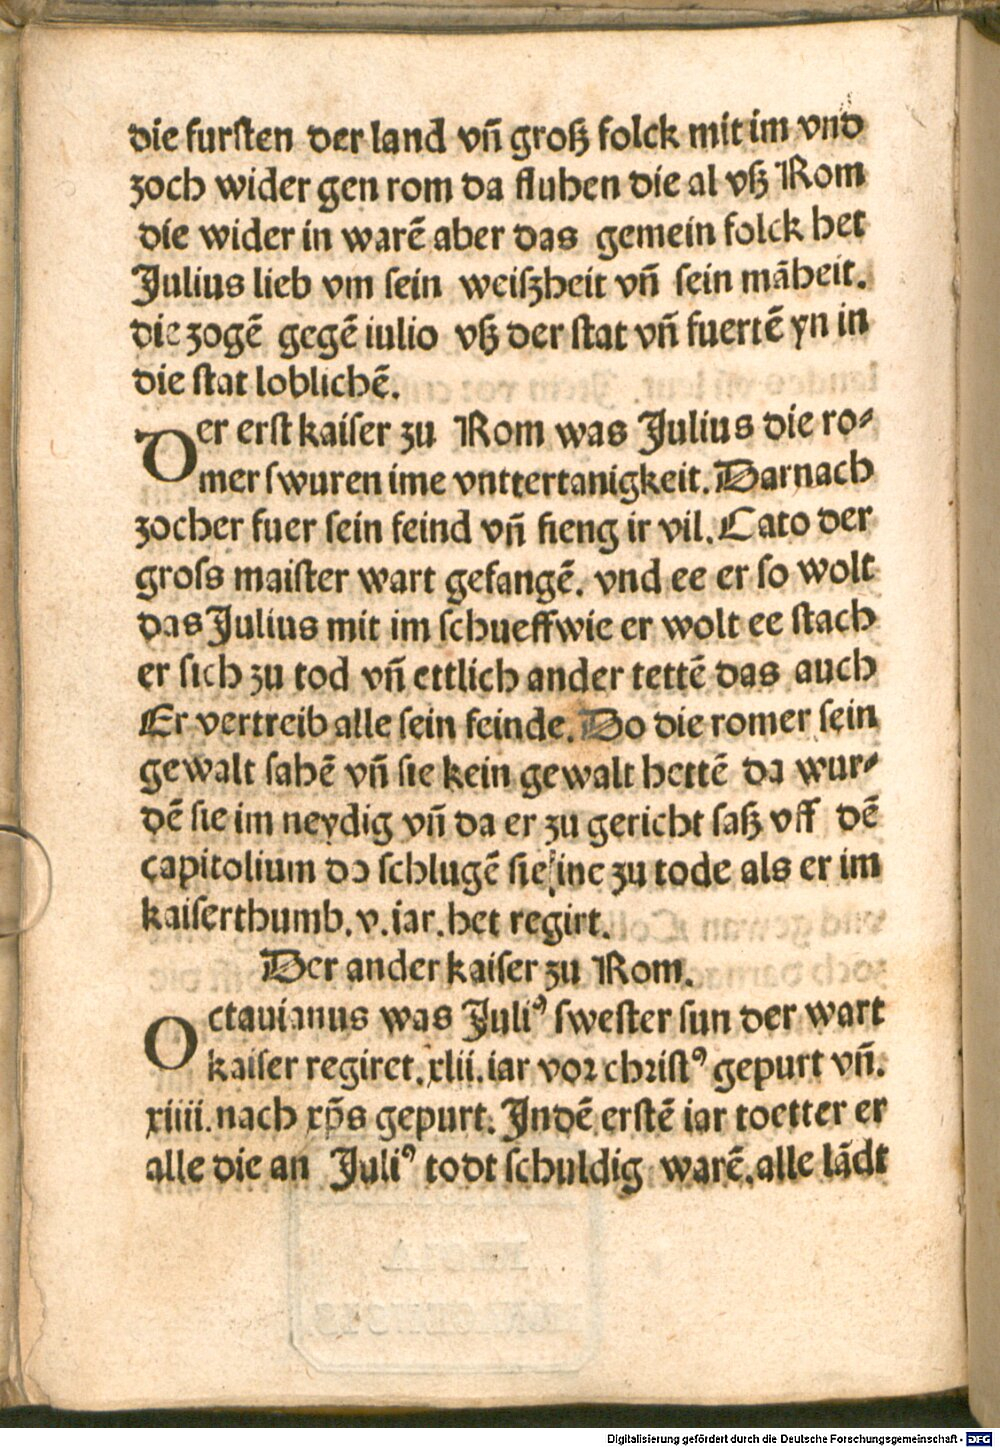 die fursten der land vn̄ groß folck mit im vnd
zoch wider gen rom da fluhen die al vß Rom
die wider in warē aber das gemein folck het
Julius lieb vm sein weiſzheit vn̄ sein māheit.
die zogē gegē iulio vß der stat vn̄ fuertē yn in
die stat loblichē.
Der erst kaiser zu Rom was Julius die ro⸗
mer swuren ime vnttertanigkeit. Darnach
zocher fuer sein feind vn̄ fieng ir vil. Cato der
gross maister wart gefangē. vnd ee er so wolt
das Julius mit im schueff wie er wolt ee stach
er sich zu tod vn̄ ettlich ander tettē das auch
Er vertreib alle sein feinde. Do die romer sein
gewalt sahē vn̄ sie kein gewalt hettē da wur⸗
dē sie im neydig vn̄ da er zu gericht saß vff dē
capitolium do schlugē sie ine zu tode als er im
kaiserthumb. v. iar. het regirt.
Der ander kaiser zu Rom.
Octauianus was Juliꝰ swester sun der wart
kaiser regiret. xlii. iar vor christꝰ gepurt vn̄.
xiiii. nach xp̄s gepurt. Indē erstē iar toetter er
alle die an Juliꝰ todt schuldig warē. alle lādt
Digitalisierung gefördert durch die Deutsche Forschungsgemeinschaft - DFG